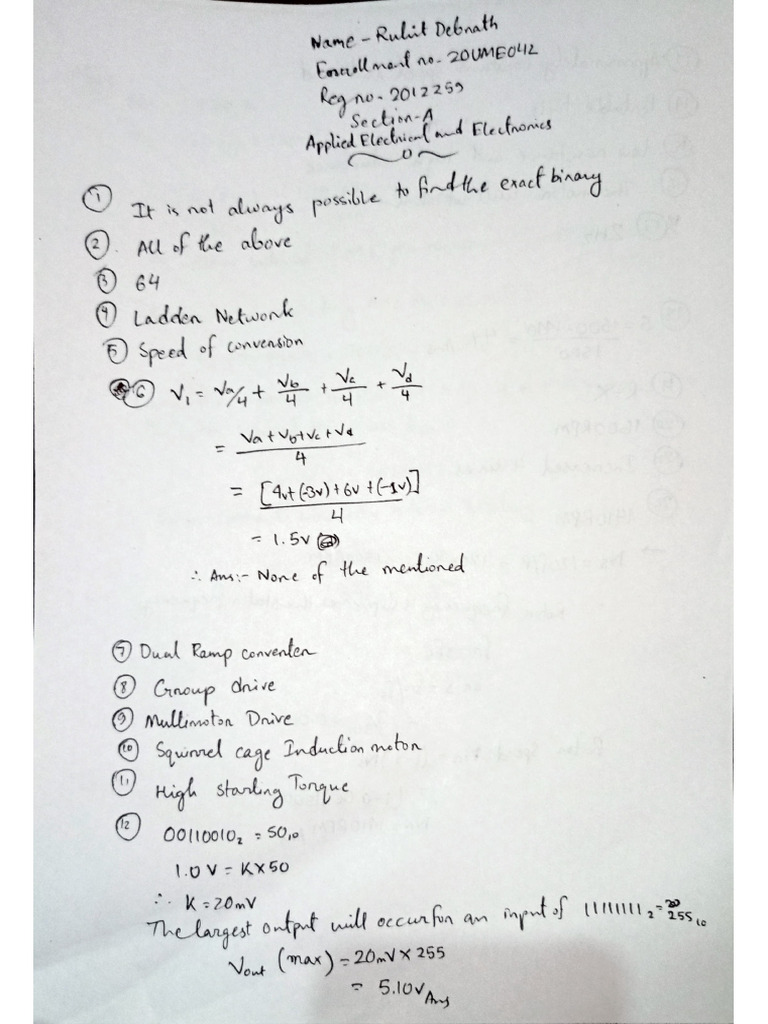 Name - Ruhit Debnath
Enrollment no - 20UME042
Reg no - 2012259
Section - A
Applied Electrical and Electronics
① It is not always possible to find the exact binary
② All of the above
③ 64
④ Ladder Network
⑤ Speed of conversion
⑥ V₁ = Va/4 + Vb/4 + Vc/4 + Vd/4
= Va + Vb + Vc + Vd / 4
= [4v + (-3v) + 6v + (-1v)] / 4
= 1.5v
∴ Ans:- None of the mentioned
⑦ Dual Ramp converter
⑧ Group drive
⑨ Multimotor Drive
⑩ Squirrel cage Induction motor
⑪ High starting Torque
⑫ 00110010₂ = 50₁₀
1.0 V = K × 50
∴ K = 20mV
The largest output will occur for an input of 11111111₂ = 255₁₀
Vout (max) = 20mV × 255
= 5.10V Ans